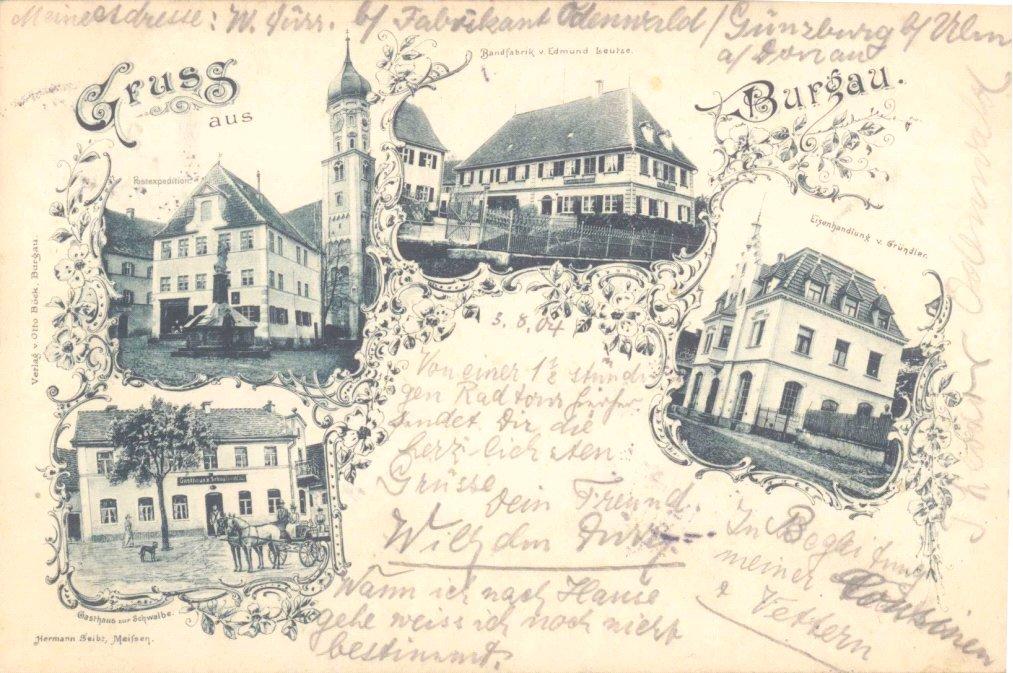 Meine Adresse: W. Dürr. b/ Fabrikant Odenwald / Günzburg b/ Ulm
a/ Donau
Gruss
aus
Burgau.
Bandfabrik v. Edmund Leutze.
Postexpedition.
Eisenhandlung v. Gründler.
Verlag v. Otto Böck, Burgau.
3. 8. 04
Von einer 1½ stündi
gen Radtour hierher
sendet Dir die
herzlichsten
Grüsse
Dein Freund.
Wilhelm Dürr
In Begleitung
meiner Cousinen
& Vettern
Wann ich nach Hause
gehe weiss ich noch nicht
bestimmt.
Odenwald
Gasthaus z. Schwalbe
Gasthaus zur Schwalbe.
Hermann Seibt, Meißen.